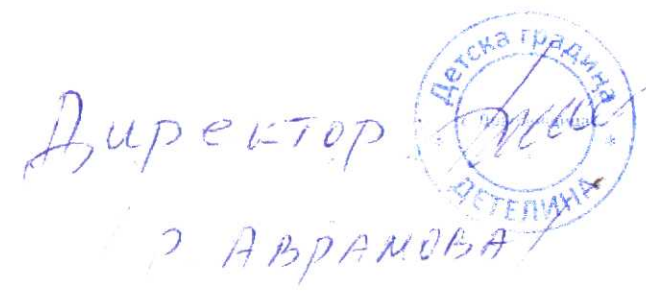 Директор:
Детска градина
ДЕТЕЛИНА
АВРАМОВА